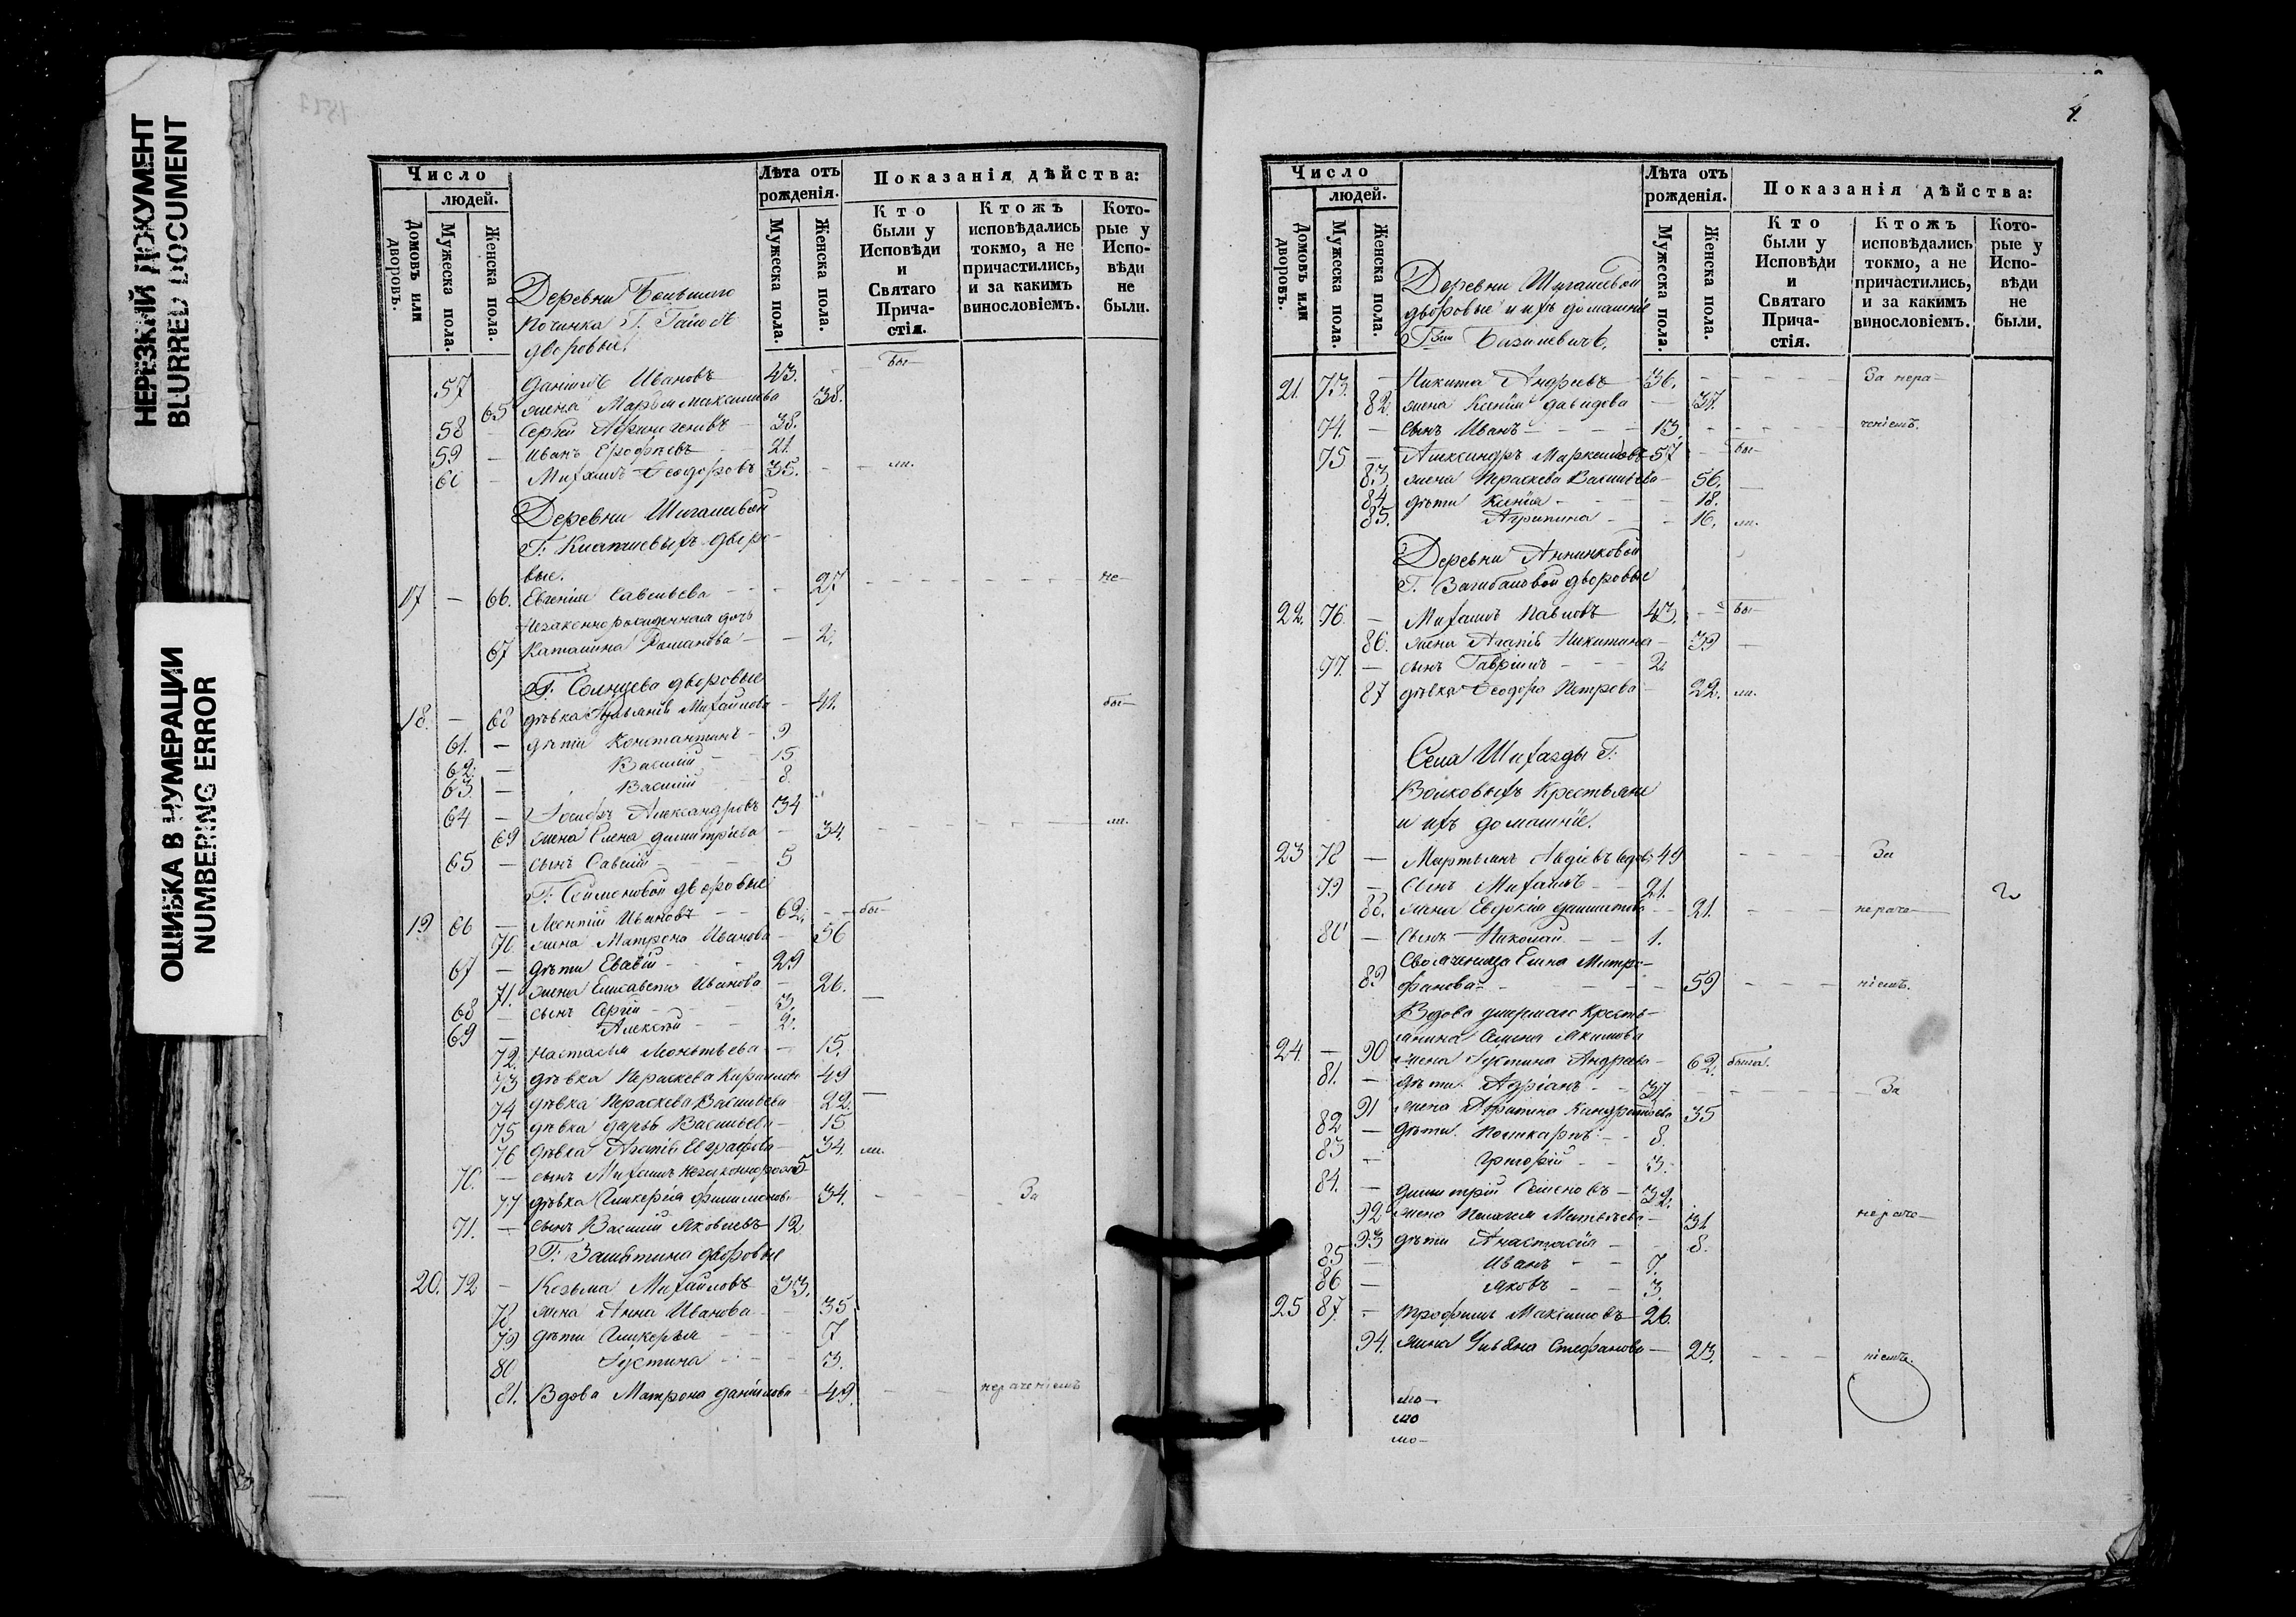 НЕРЕЗКИЙ ДОКУМЕНТ
BLURRED DOCUMENT
ОШИБКА В НУМЕРАЦИИ
NUMBERING ERROR
Число
людей.
Домовъ или дворовъ.
Мужеска пола.
Женска пола.
Лѣта отъ рожденія.
Мужеска пола.
Женска пола.
Показанія дѣйства:
Кто были у Исповѣди и Святаго Прича-стія.
Ктожъ исповѣдались токмо, а не причастились, и за какимъ винословіемъ.
Кото-рые у Испо-вѣди не были.
Деревни Большаго
Починка Г.
дворовые.
57 Даніилъ Ивановъ 43. Бы-
65 жена Марья Максимова 38.
58 Сергѣй 38.
59 Иванъ Ерофѣевъ 21.
60 Михаилъ Ѳеодоровъ 35. ли.
Деревни Шигалевой
Г. дворо-
вые.
17 66. Евгенія Савельева 27 не-
Незаконнорожденная дочь
67 Романова 2.
Г. Солнцева дворовые
18. 68 дѣвка Михайлова 41. бы-
61. дѣти Константинъ 9
62. Василій 15
63. Василій 8.
64 Іосифъ Александровъ 34
69 жена Елена Димитріева 34. ли.
65 сынъ Савелій 5
Г. дворовые
19 66 Леонтій Ивановъ 62. бы-
70. жена Матрена Иванова 56
67 дѣти 29
71. жена Елисавета Иванова 26.
68 сынъ Сергій 3.
69 Алексѣй 2.
72. Настасья Леонтьева 15.
73 дѣвка Параскева 49
74 дѣвка Параскева Васильева 22.
75 дѣвка Дарья Васильева 15
76 дѣвка Агапія Евграфова 34. ли.
70. сынъ Михаилъ 5
77 дѣвка Гликерія Филимонова 34. За
71. сынъ Василій Яковлевъ 12
Г. дворовые
20. 72 Козьма Михайловъ 33.
78. жена Анна Иванова 35
79 дѣти Гликерья 7
80 Іустина 3.
81. Вдова Матрона Даніилова 49. нераченіемъ
4.
Число
людей.
Домовъ или дворовъ.
Мужеска пола.
Женска пола.
Лѣта отъ рожденія.
Мужеска пола.
Женска пола.
Показанія дѣйства:
Кто были у Исповѣди и Святаго Прича-стія.
Ктожъ исповѣдались токмо, а не причастились, и за какимъ винословіемъ.
Кото-рые у Испо-вѣди не были.
Деревни Шигалевой
дворовые и ихъ домашніе
Базилевичъ.
21. 73. Никита Андреевъ 36. За нера-
82. жена Ксенія Давидова 37.
74. сынъ Иванъ 13. ченіемъ.
75 Александръ 57 бы-
83. жена Параскева Васильева 56.
84. дѣти Ксенія 18.
85. Агрипина 16. ли.
Деревни Аннинковой
Г. Загибаловой дворовые
22. 76. Михаилъ Павловъ 43. бы-
86. жена Агапія Никитина 39
77. сынъ Гавріилъ 2.
87 дѣвка Ѳеодора Петрова 22. ли.
Села Шихазды Г.
Волковыхъ Крестьяне
и ихъ домашніе.
23 78 Мартынъ Авдіевъ вдов. 49 За
79 сынъ Михаилъ 21.
88. жена Евдокія 21. нераче-
80 сынъ Николай 1.
Своячница Елена Митро-
89 фанова 59 ніемъ.
Вдова умершаго Кресть-
янина Якимова
24. 90 жена Іустина Андреева 62. была.
81. дѣти Адріанъ 37 За
91 жена Агрипина 35
82 дѣти Поликарпъ 8.
83 Григорій 3.
84. Димитрій Семеновъ 32.
92 жена Пелагея 31 нераче-
93 дѣти Анастасія 8.
85 Иванъ 7.
86 Яковъ 3.
25 87. Трофимъ Максимовъ 26.
94. жена Ульяна Стефанова 23. ніемъ.